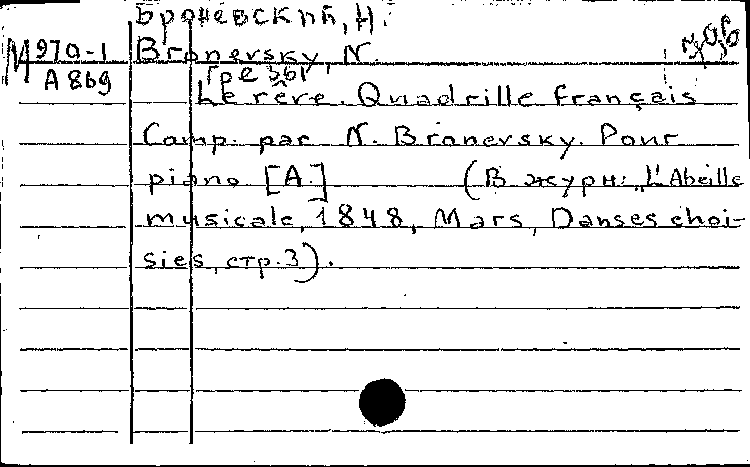 Броневский, Н.
М 970-1 Bronevsky, N.
А 869 [грезы]
Le rêve. Quadrille français
Comp. par N. Bronevsky. Pour
piano [A.] (В журн: „L'Abeille
musicale, 1848, Mars, Danses choi-
sies, стр. 3).